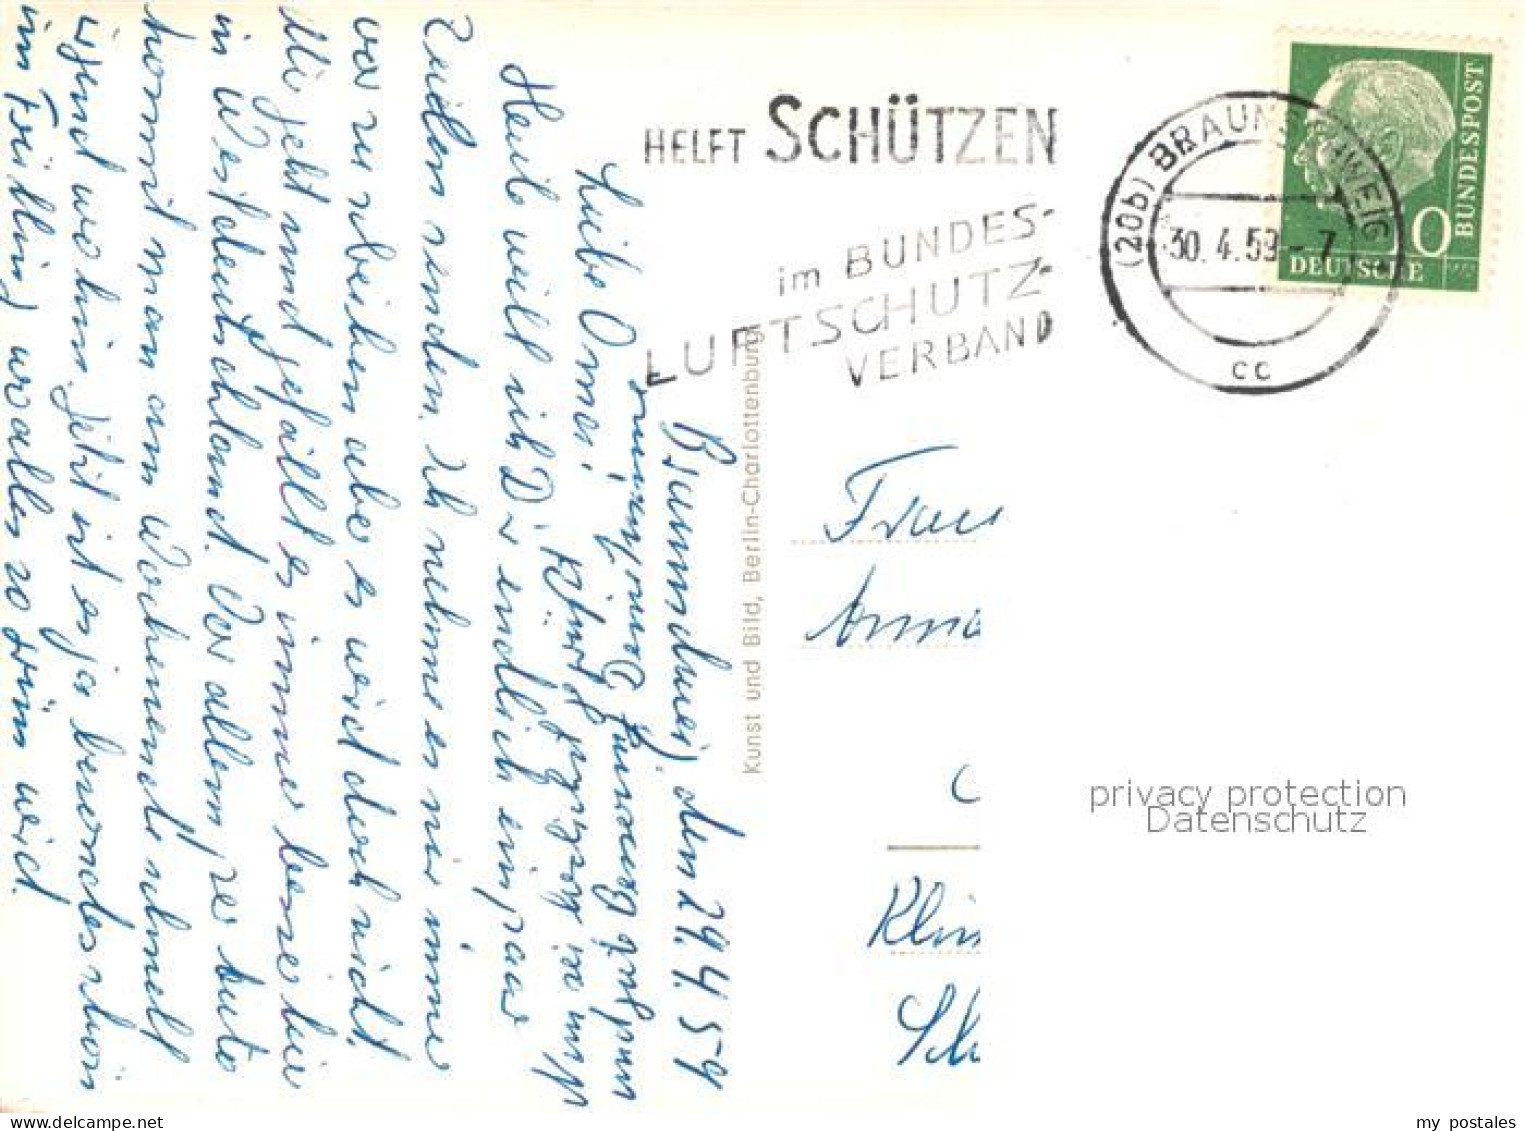 HELFT SCHÜTZEN
im BUNDES-
LUFTSCHUTZ-
VERBAND
(20b) BRAUNSCHWEIG
30.4.59-7
cc
BUNDESPOST
10
DEUTSCHE
Braunschweig, den 29.4.59
Liebe Oma!
Heute will ich Dir endlich ein paar
Zeilen senden. Ich nehme es mir immer
vor zu schreiben aber es wird doch nicht.
Mir geht und gefällt es immer besser hier
in Westdeutschland. Vor allem per Auto
kommt man am Wochenende schnell
irgend wo hin. Jetzt ist es ja besonders schön
im Frühling wo alles so grün wird.
Kunst und Bild, Berlin-Charlottenburg
Frau
Anna
Klin
Sch
privacy protection
Datenschutz
my postales